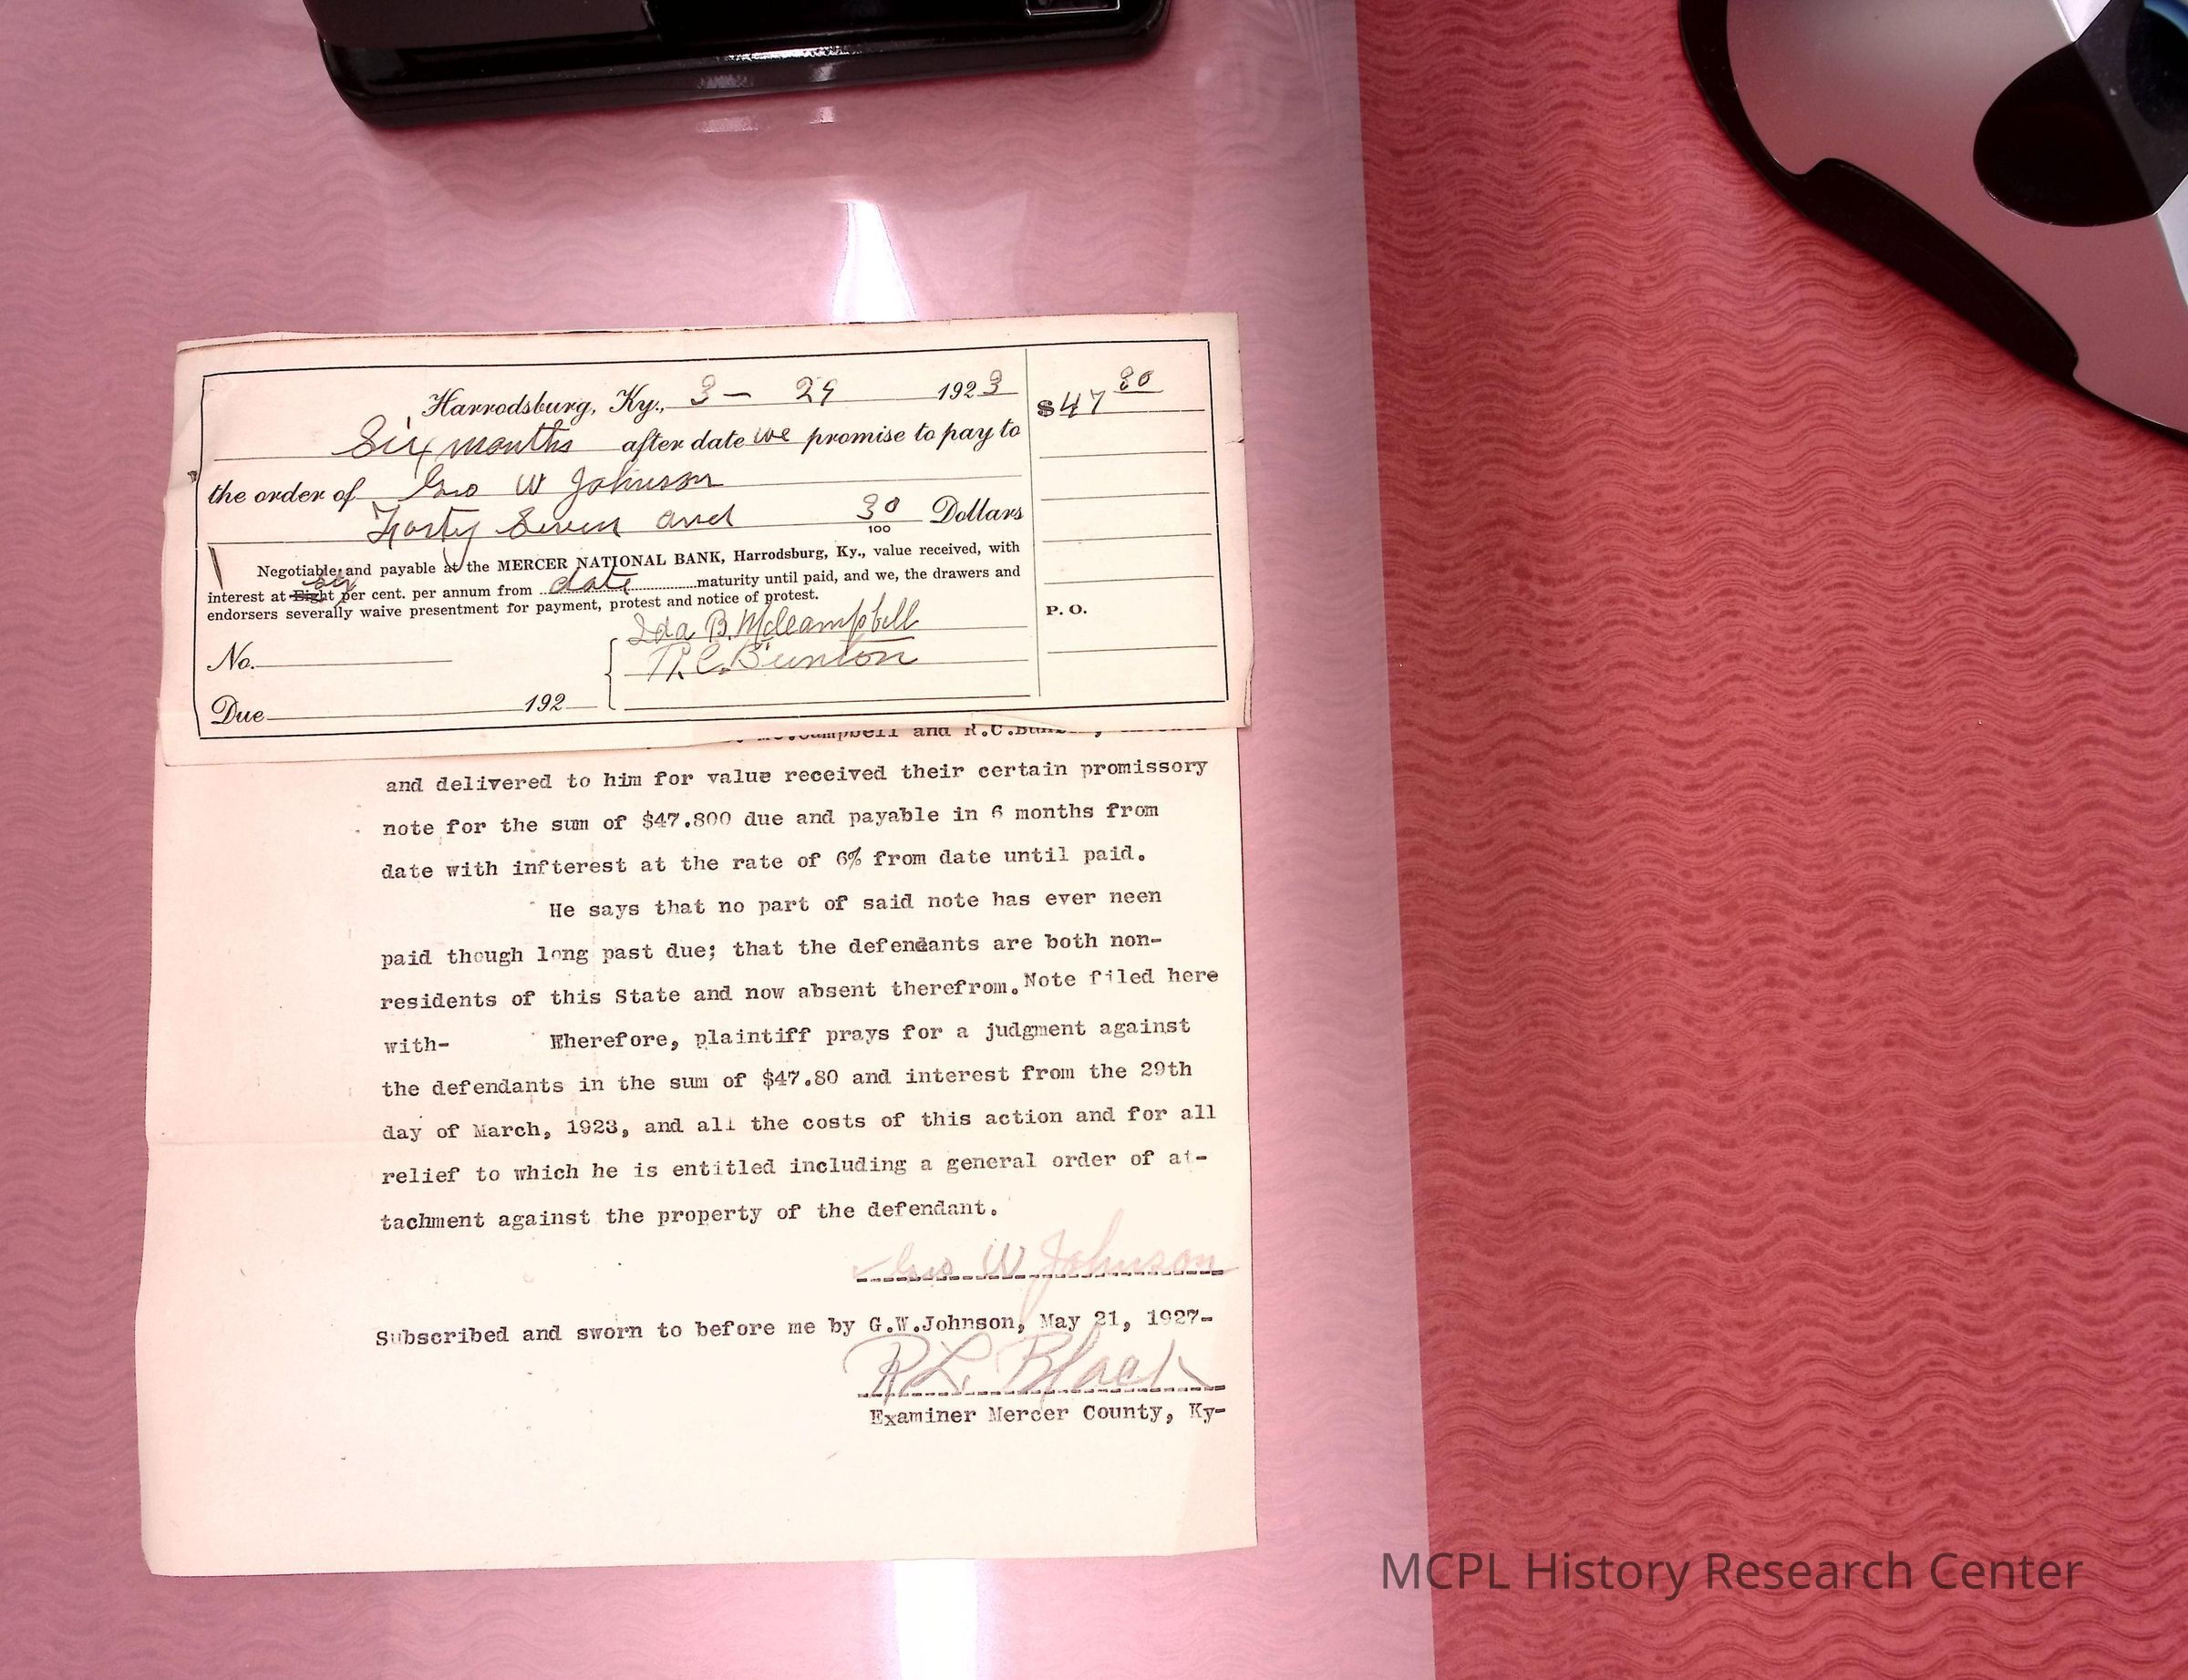 Harrodsburg, Ky., 3 - 29 1923
$47 80
Six months after date we promise to pay to
the order of Geo W Johnson
Forty Seven and 80/100 Dollars
Negotiable and payable at the MERCER NATIONAL BANK, Harrodsburg, Ky., value received, with
interest at Eight six per cent. per annum from date maturity until paid, and we, the drawers and
endorsers severally waive presentment for payment, protest and notice of protest.
P. O.
Ida B. McCampbell
R.C. Bunton
No.
Due 192
McCampbell and R.C.
and delivered to him for value received their certain promissory
note for the sum of $47.800 due and payable in 6 months from
date with infterest at the rate of 6% from date until paid.
He says that no part of said note has ever neen
paid though long past due; that the defendants are both non-
residents of this State and now absent therefrom. Note filed here
with- Wherefore, plaintiff prays for a judgment against
the defendants in the sum of $47.80 and interest from the 29th
day of March, 1923, and all the costs of this action and for all
relief to which he is entitled including a general order of at-
tachment against the property of the defendant.
Geo W Johnson
Subscribed and sworn to before me by G.W.Johnson, May 21, 1927-
R.L. Black
Examiner Mercer County, Ky-
MCPL History Research Center